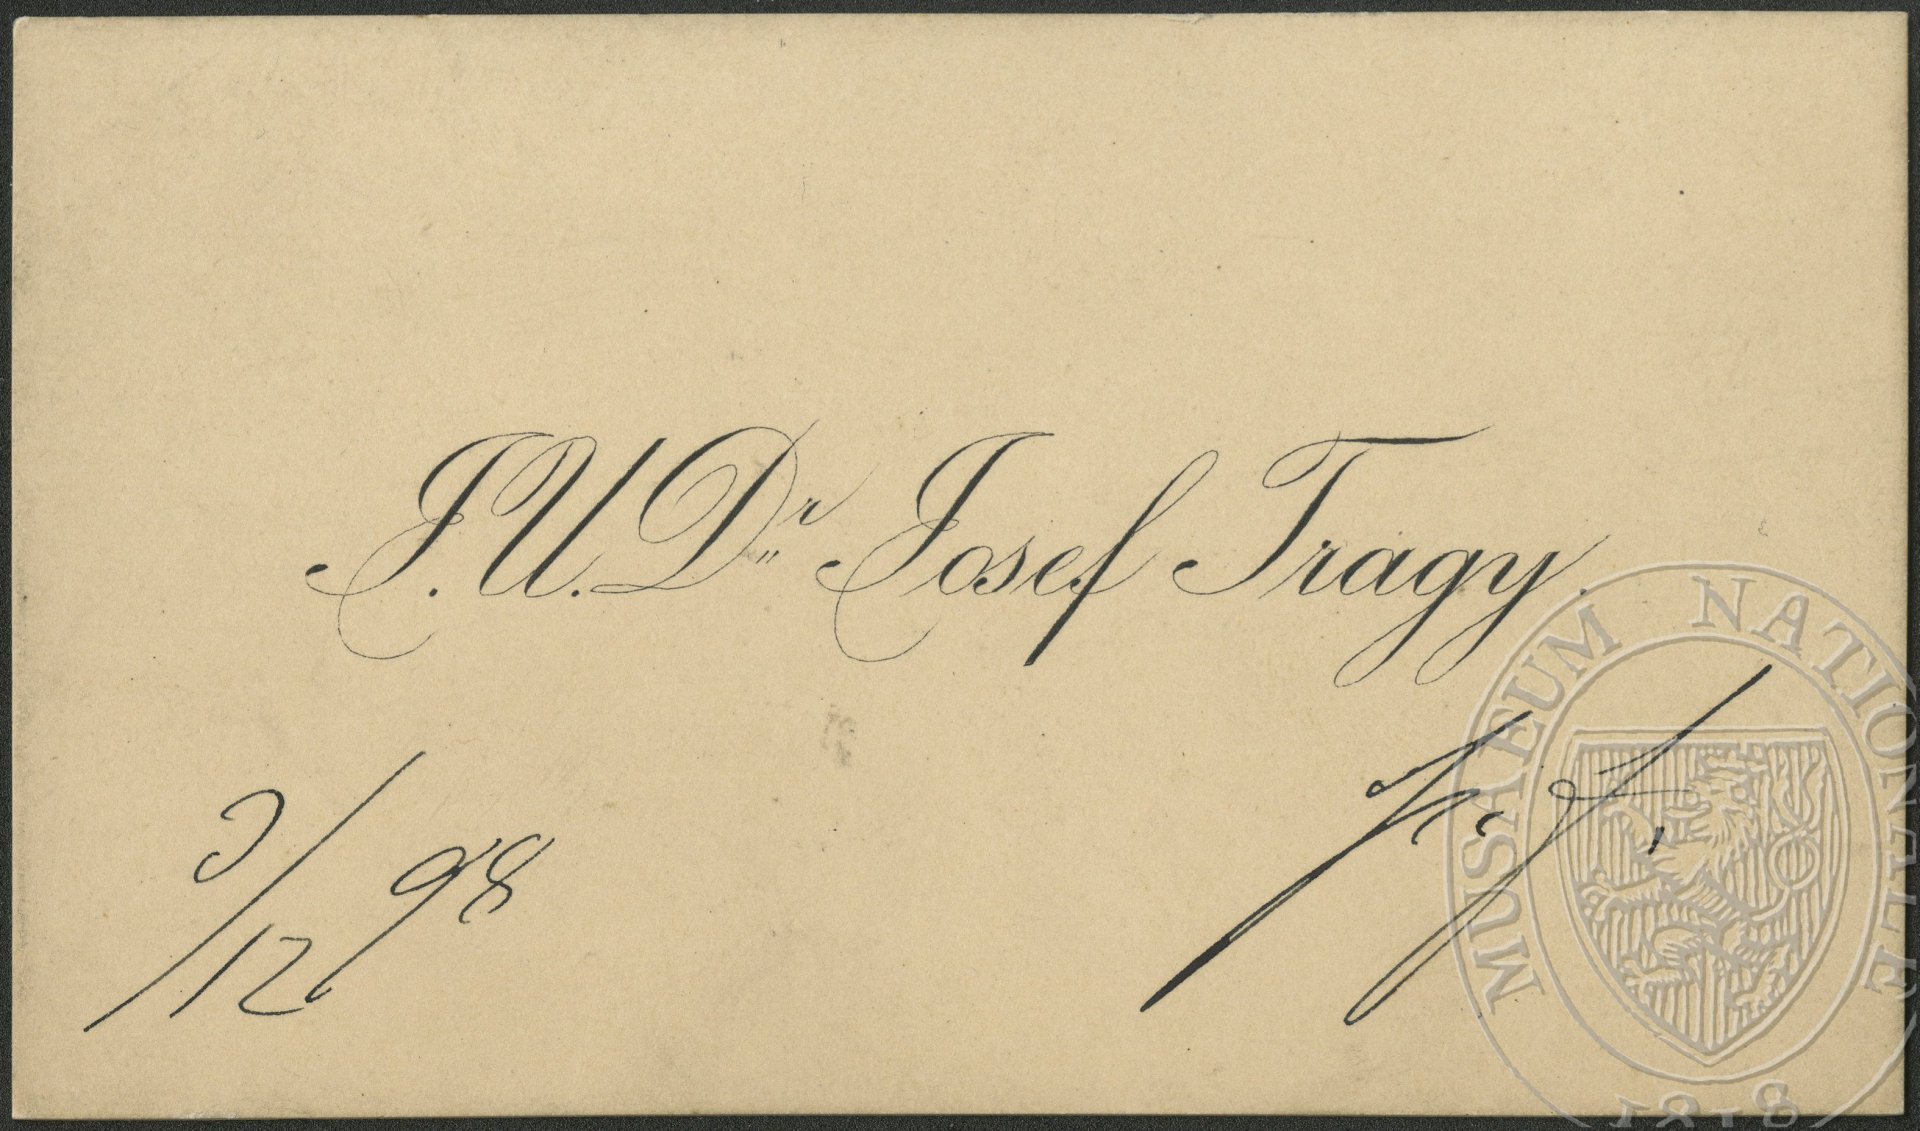 J.U.Dr Josef Tragy.
3/12 98
p. f.
MUSAEUM NATIONALE
1818